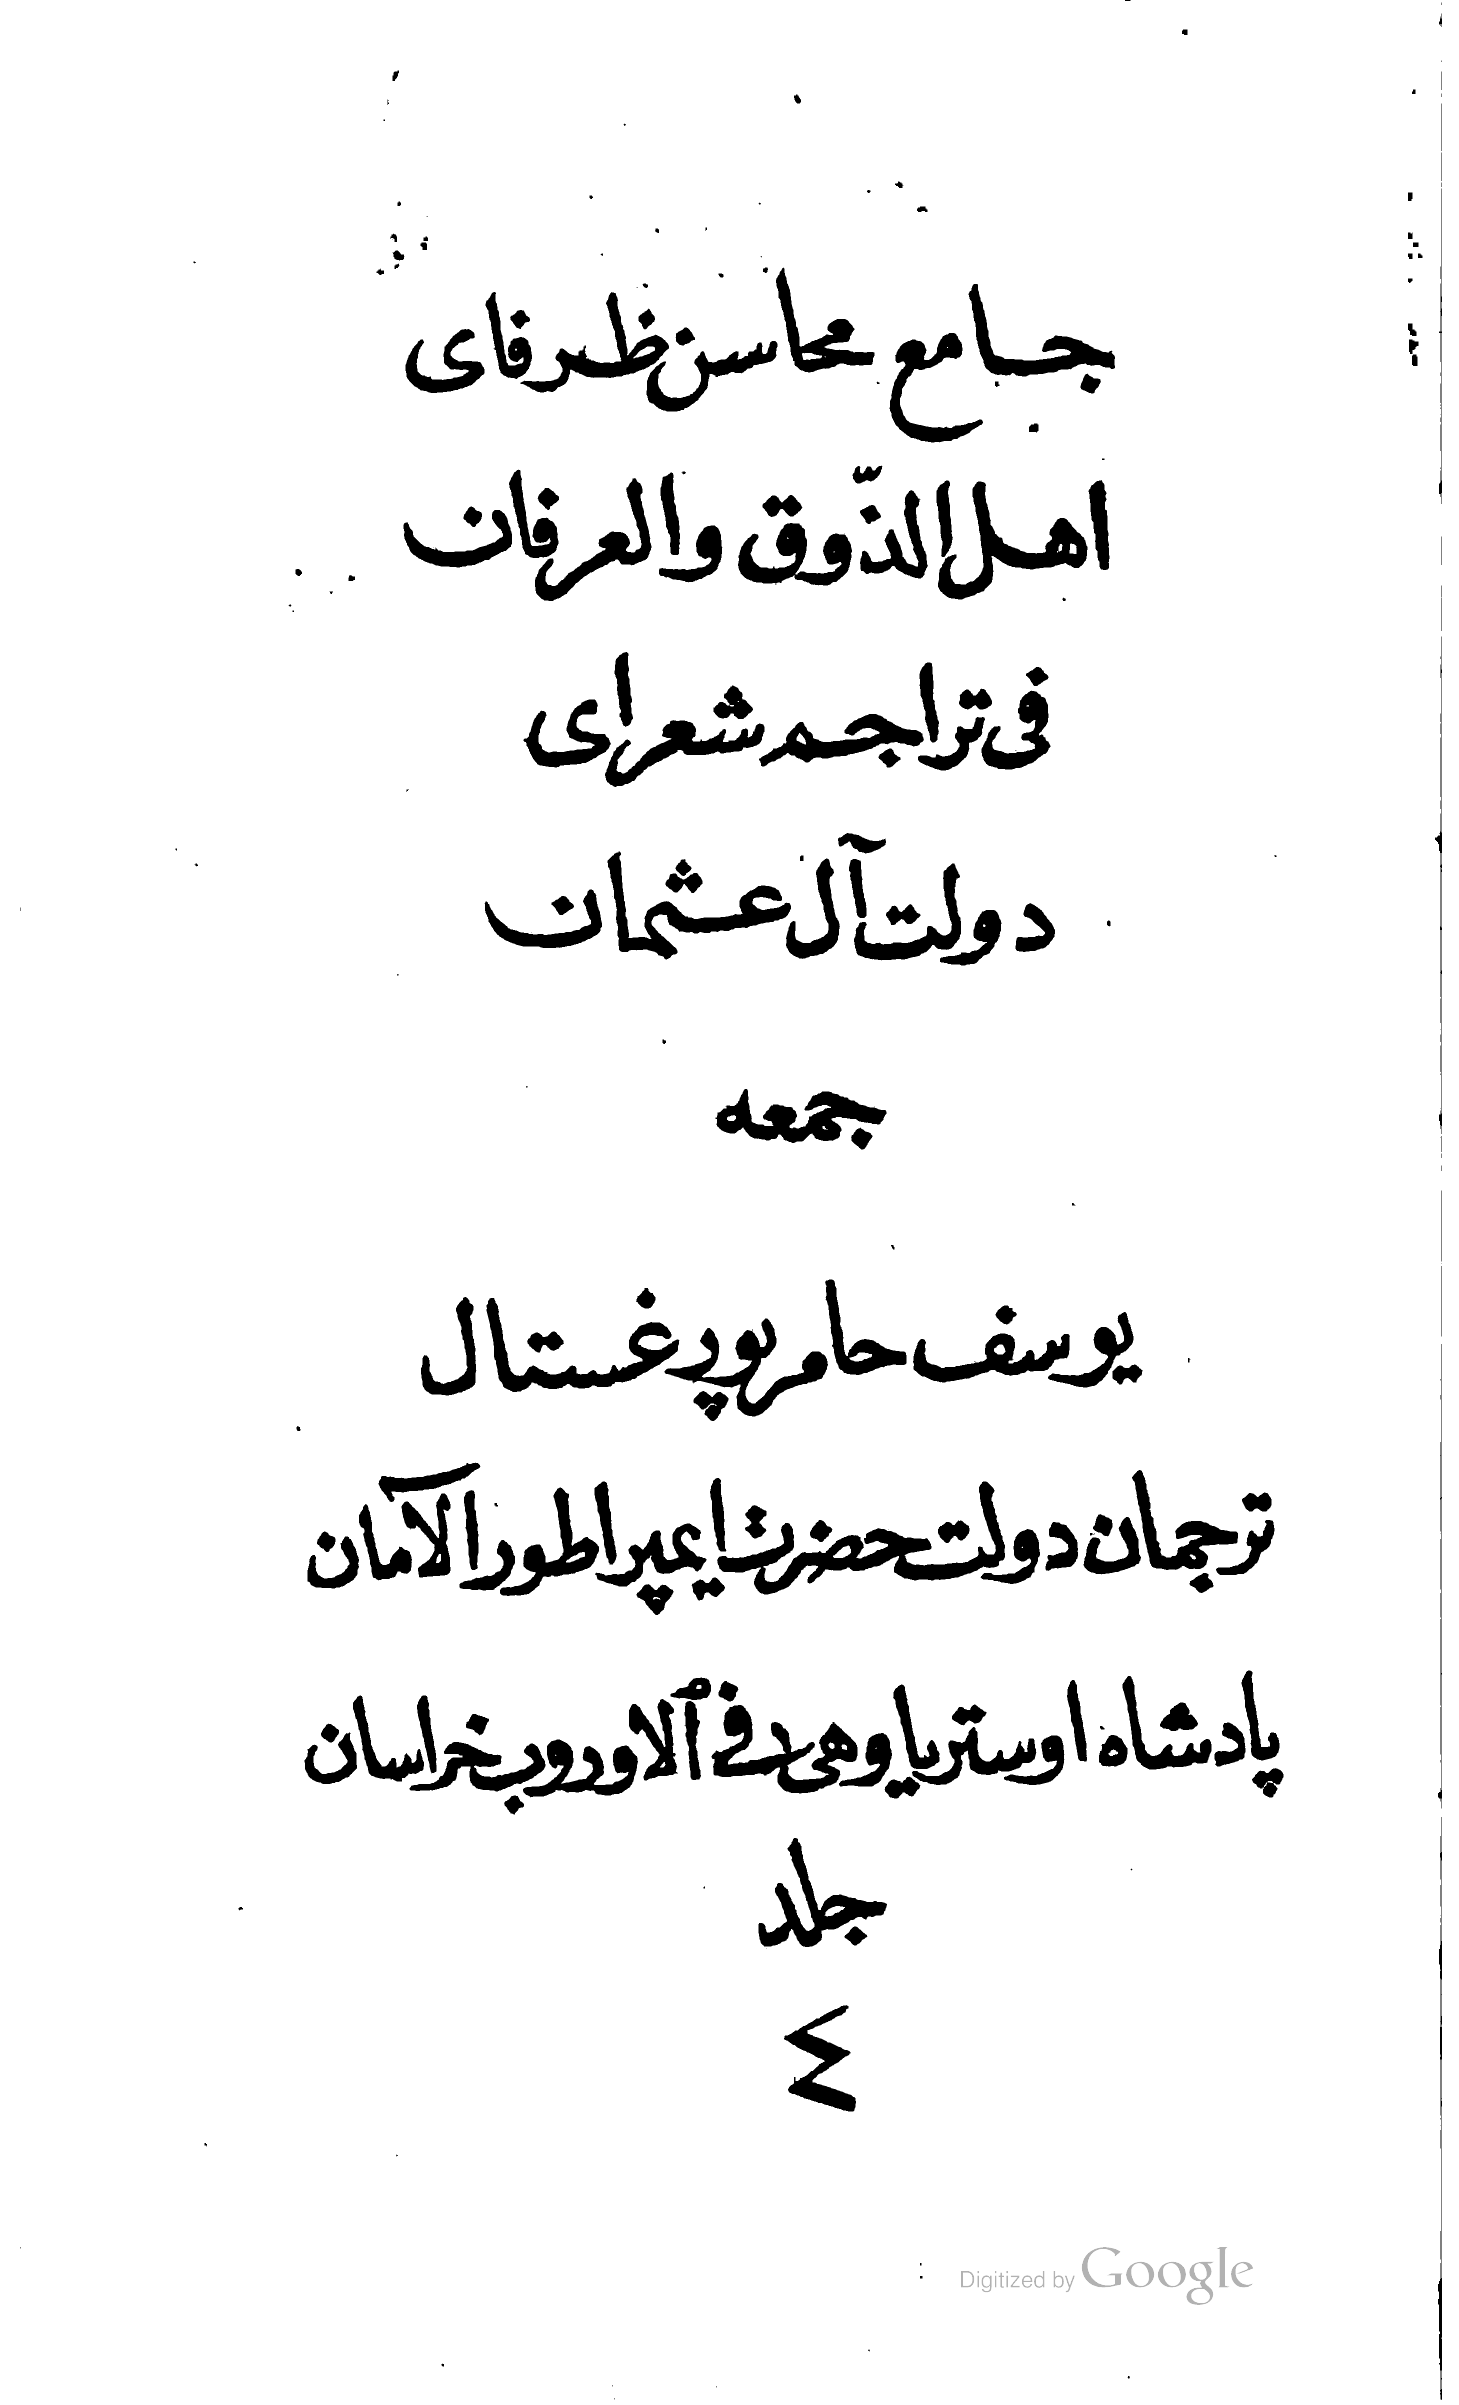 جامع محاسن ظرفای
اهل الذّوق والعرفان
فی تراجم شعرای
دولت آل عثمان
جمعه
یوسف حامر پورغستال
ترجمان دولت حضرت ایمپراطور الآمان
پادشاه اوستریا وهی فی ٱلاوروب خراسان
جلد
٤
Digitized by Google